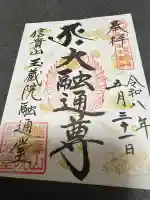 奉拝
令和八年
五月三十一日
大融通尊
信貴山
玉蔵院融通堂